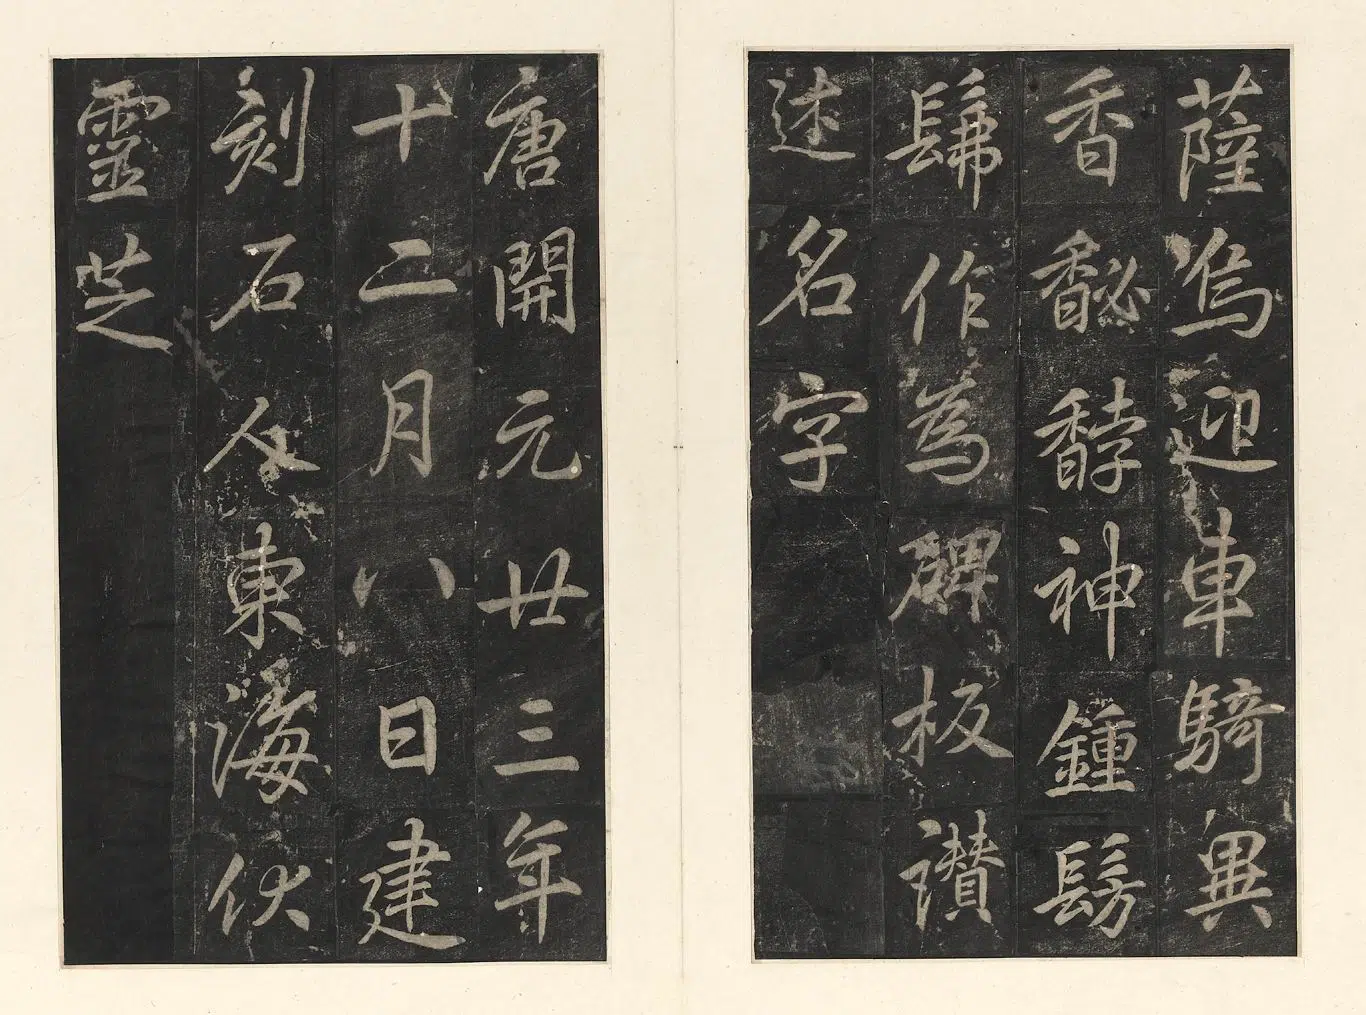 薩爲迎車騎異
香馥馞神鍾髣
髴作為碑板讃
述名字
唐開元廿三年
十二月八日建
刻石人東海伏
靈芝